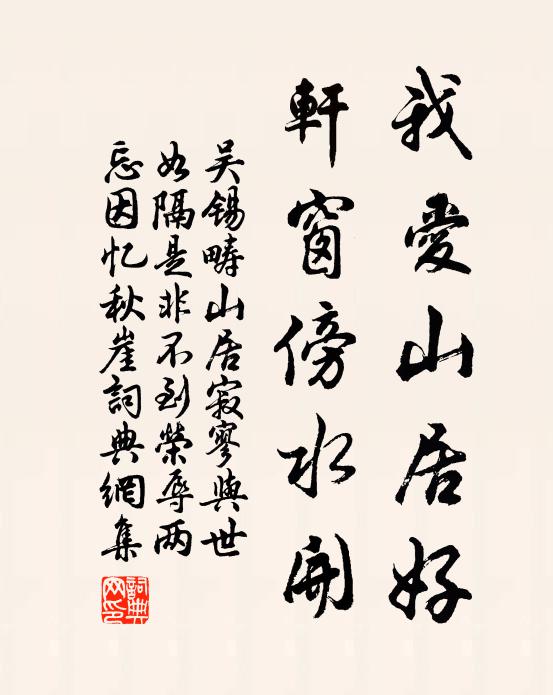 我愛山居好
軒窗傍水開
吴錫疇山居寂寥與世
如隔是非不到榮辱两
忘因忆秋崖詞典網集
詞典網印